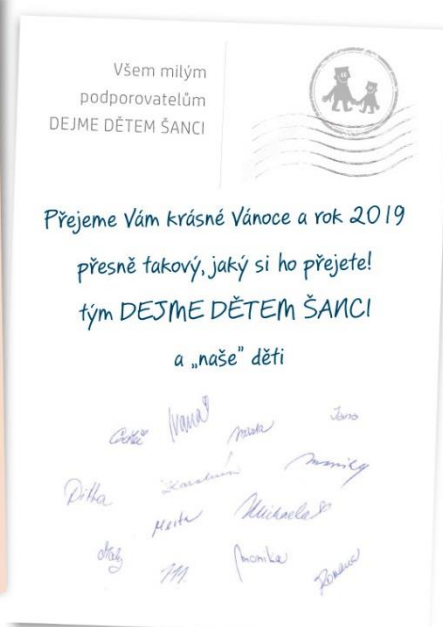 Všem milým
podporovatelům
DEJME DĚTEM ŠANCI
Přejeme Vám krásné Vánoce a rok 2019
přesně takový, jaký si ho přejete!
tým DEJME DĚTEM ŠANCI
a „naše" děti
Ivana
Ditha
Marta
Michaela
Monika
Romana